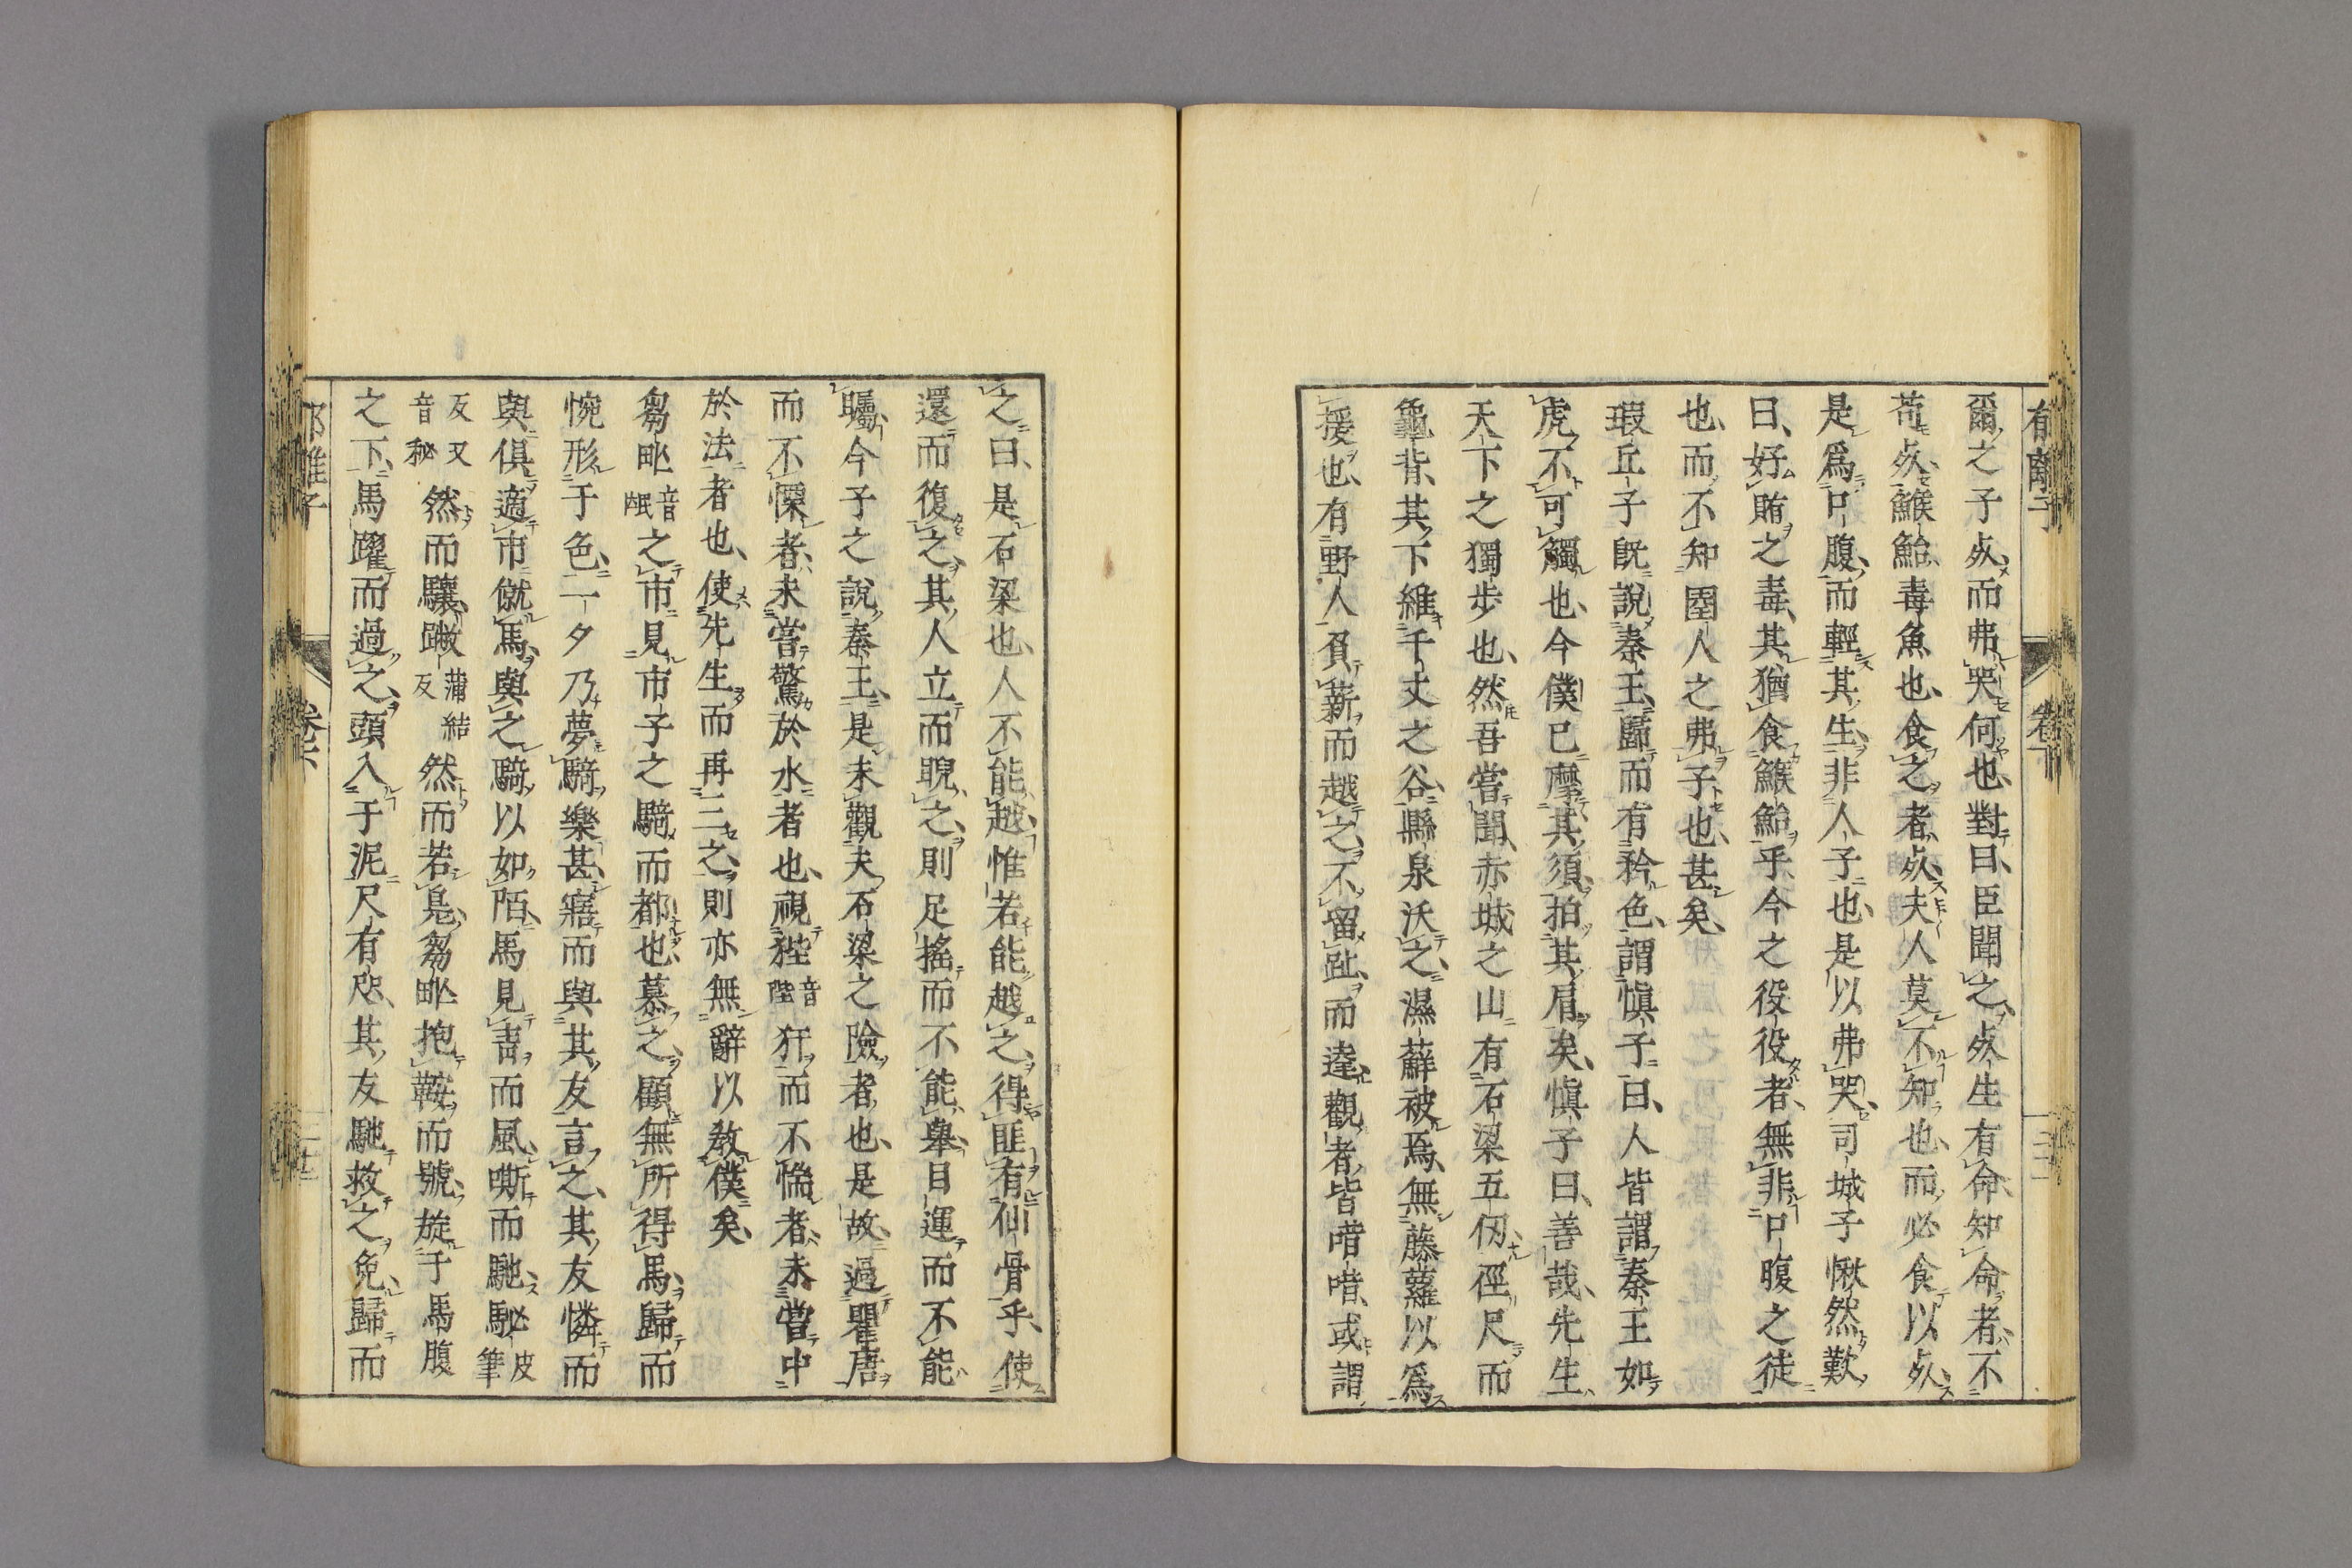 爾之子死而弗哭何也對曰臣聞之死生有命知命者不
苟死鯸鮐毒魚也食之者死夫人莫不知也而必食以死
是爲口腹而輕其生非人子也是以弗哭司城子愀然歎
曰好賄之毒其猶食鯸鮐乎今之役役者無非口腹之徒
也而不知圉人之弗子也甚矣
瑕丘子旣說秦王歸而有矜色謂慎子曰人皆謂秦王如
虎不可觸也今僕已摩其須拍其肩矣慎子曰善哉先生
天下之獨步也然吾嘗聞赤城之山有石梁五仞徑尺而
龜背其下維千丈之谷縣泉沃之濕蘚被焉無藤蘿以爲
援也有野人負薪而越之不留趾而達觀者皆唶唶或謂
之曰是石梁也人不能越惟若能越之得匪有仙骨乎使
還而復之其人立而睨之則足搖而不能舉目運而不能
矚今子之說秦王是未觀夫石梁之險者也是故過瞿唐
而不慄者未嘗驚於水者也視狴音陛犴而不惴者未嘗中
於法者也使先生而再三之則亦無辭以敎僕矣
芻甿音氓之市見市子之騎而都也慕之顧無所得馬歸而
惋形于色一夕乃夢騎樂甚寤而與其友言之其友憐而
與俱適市僦馬與之騎以如陌馬見靑而風嘶而馳駜皮筆
反又音秘然而驤蹩蒲結反然而若鳧芻甿抱鞍而號旋于馬腹
之下馬躍而過之頭入于泥尺有咫其友馳救之免歸而